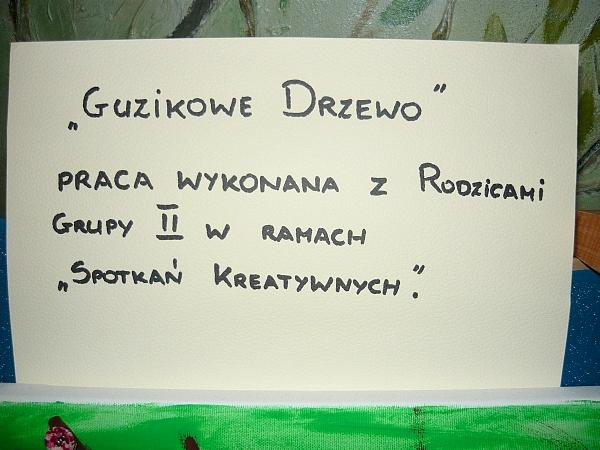 „Guzikowe Drzewo”
praca wykonana z Rodzicami
Grupy II w ramach
„Spotkań Kreatywnych”.